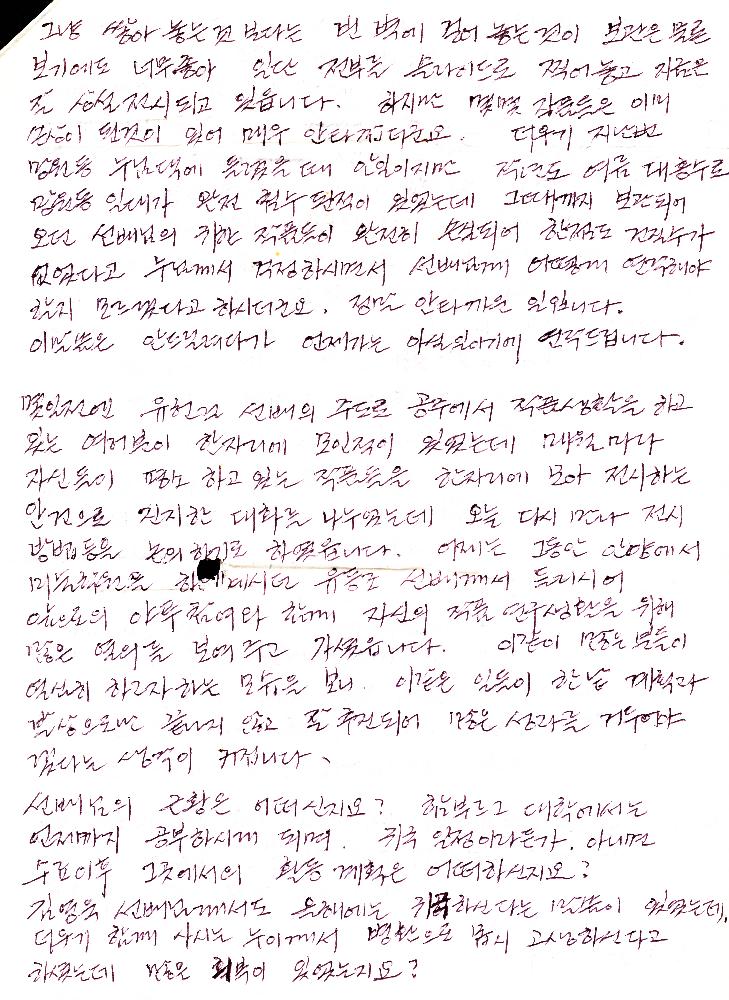 그냥 쌓아 놓는것 보다는 빈 벽에 걸어 놓는것이 보관은 물론
보기에도 너무좋아 일단 전부를 슬라이드로 찍어놓고 지금은
잘 상설전시되고 있읍니다. 하지만 몇몇 작품들은 이미
손상이 된것이 있어 매우 안타깝더군요. 더우기 지난번
망원동 누님댁에 들렸을때 안일이지만 작년도 여름 대홍수로
망원동 일대가 완전 침수된적이 있었는데 그때까지 보관되어
오던 선배님의 귀한 작품들이 완전히 손실되어 한점도 건질수가
없었다고 누님께서 걱정하시면서 선배님께 어떻게 연락해야
할지 모르겠다고 하시더군요. 정말 안타까운 일입니다.
이말씀은 안드릴려다가 언제가는 아실일이기에 연락드립니다.
몇일전엔 유현경 선배의 주도로 공주에서 작품생활을 하고
있는 여러분이 한자리에 모인적이 있었는데 매월마다
자신들이 평소 하고있는 작품들을 한자리에 모아 전시하는
안건으로 진지한 대화를 나누었는데 오늘 다시 만나 전시
방법등을 논의하기로 하였읍니다. 어제는 그동안 안양에서
미술학원을 계시던 선배께서 들리시어
앞으로의 야투참여와 함께 자신의 작품 연구생활을 위해
많은 열의를 보여주고 가셨읍니다. 이같이 많은분들이
열심히 하고자하는 모습을 보니 이같은 일들이 한낱 계획과
발상으로만 끝나지 않고 잘 추진되어 많은 성과를 거두어야
겠다는 생각이 커집니다.
선배님의 근황은 어떠신지요? 함부르그 대학에서는
언제까지 공부하시게 되며. 귀국 일정이라든가. 아니면
수료이후 그곳에서의 활동계획은 어떠하신지요?
김영욱 선배님께서도 올해에는 귀국하신다는 말씀이 있었는데,
더우기 함께 사시는 누이께서 병환으로 몹시 고생하신다고
하셨는데 많은 회복이 있었는지요?